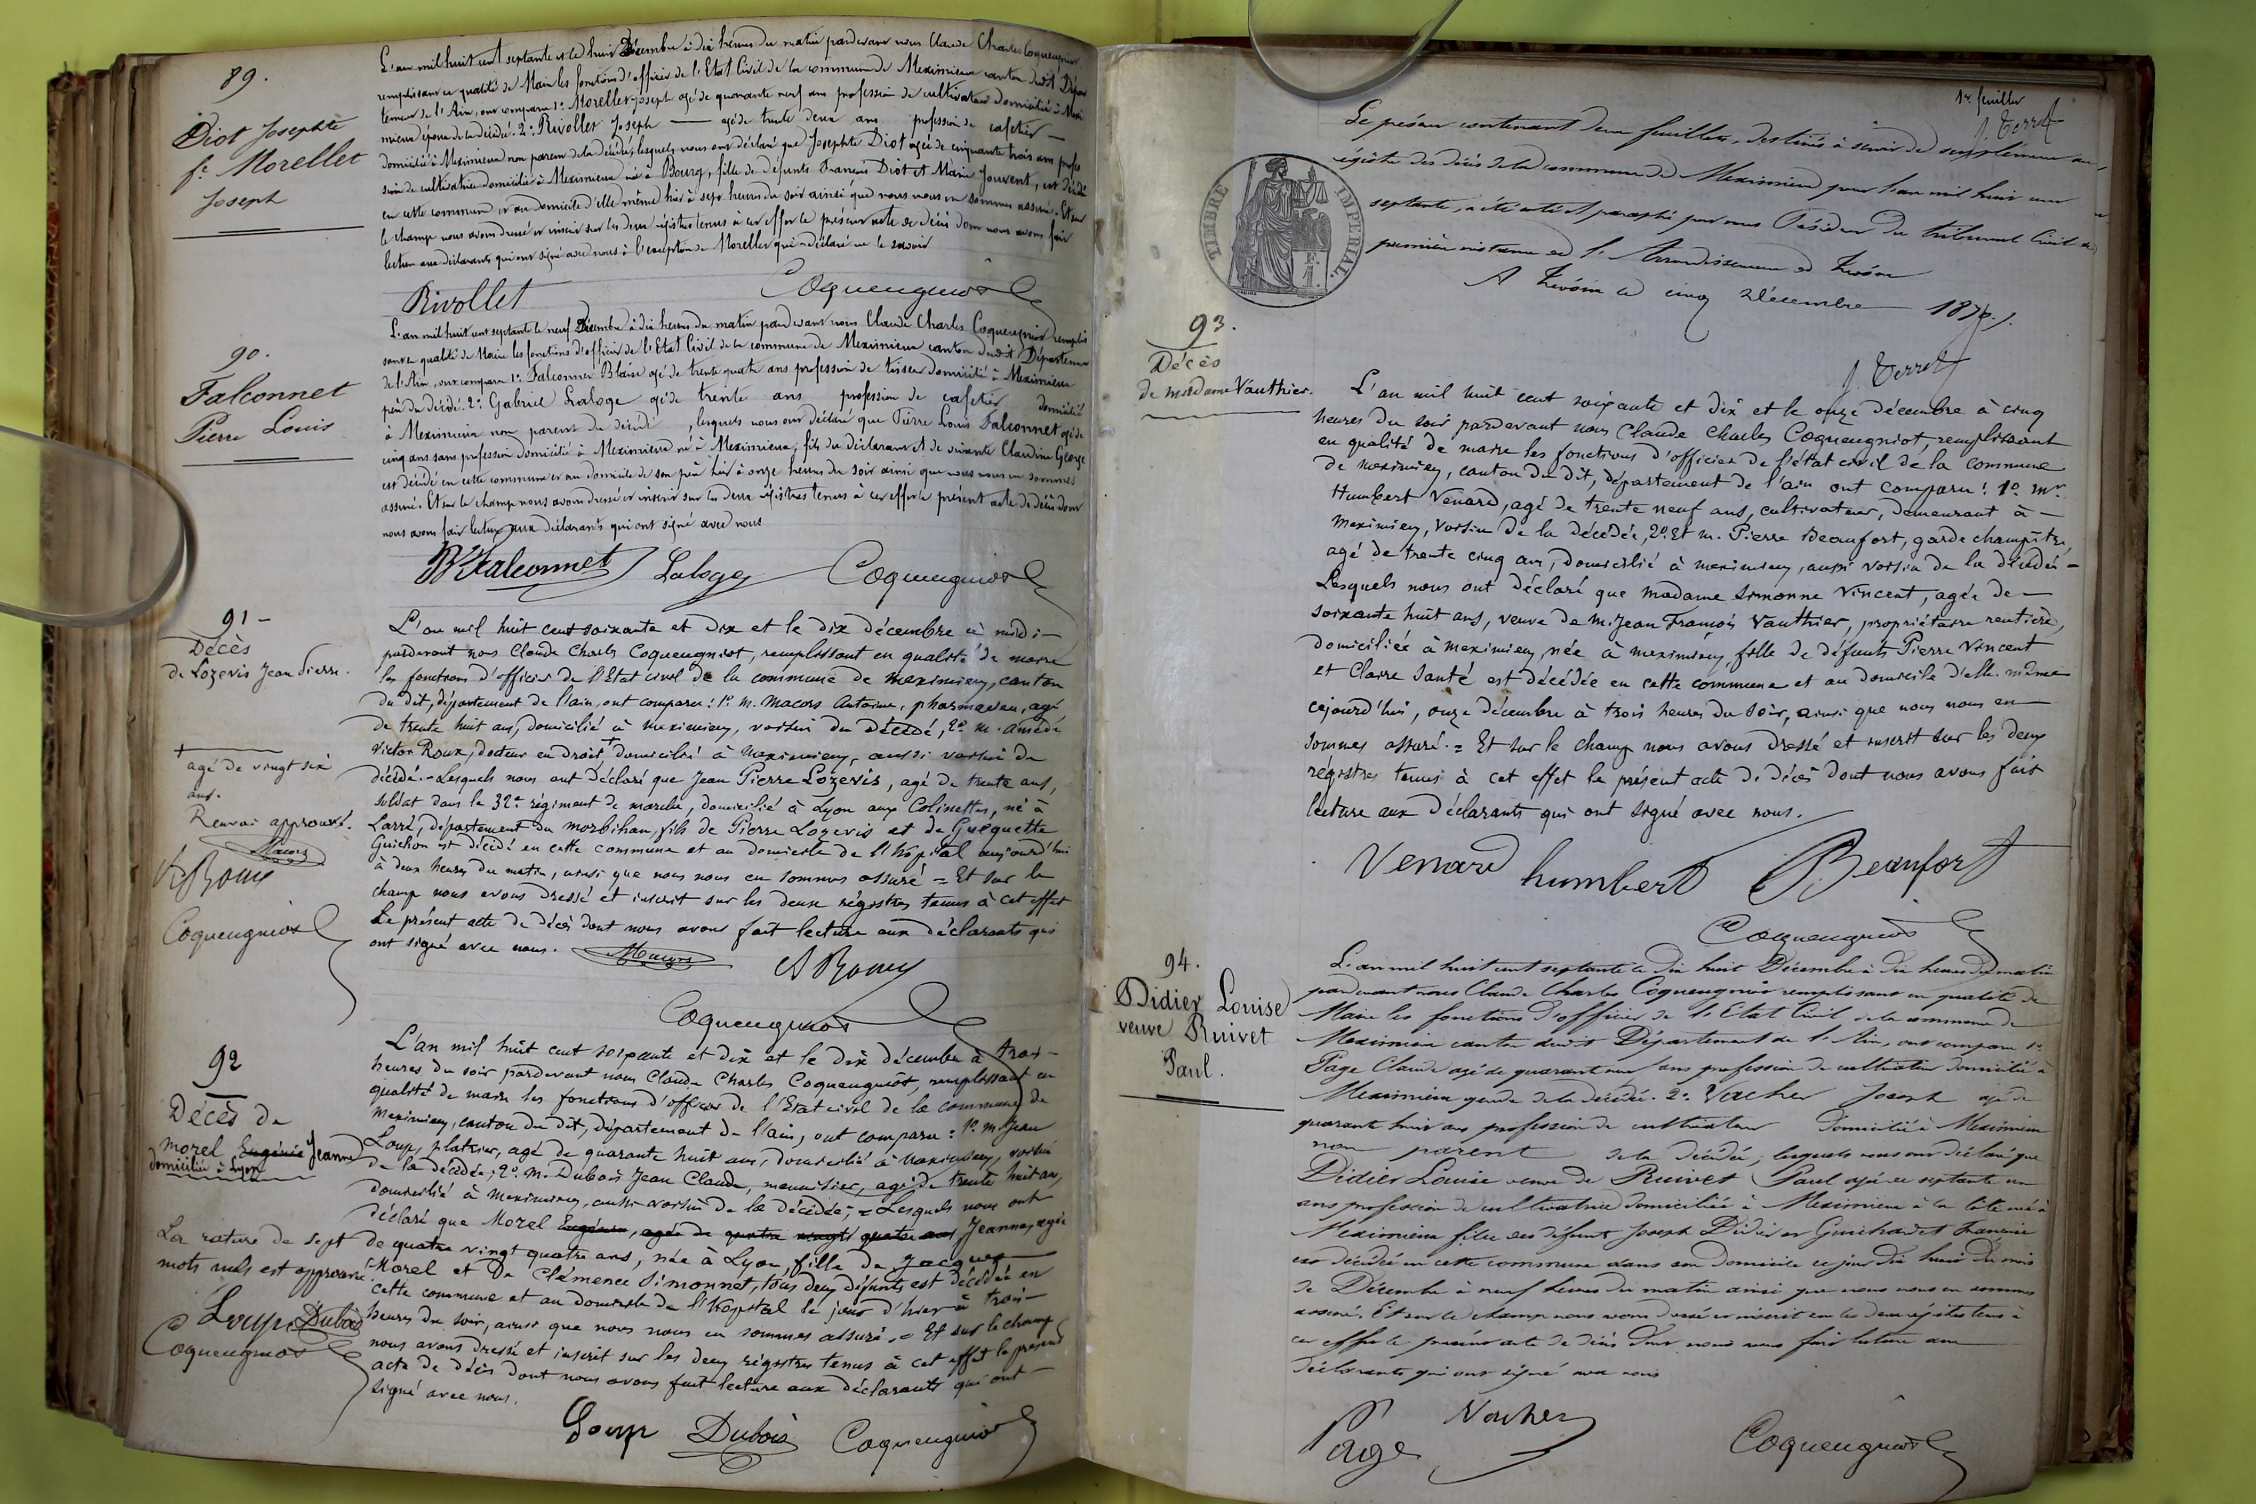 89.
Diot Josephte
fe Morellet
Joseph
L'an mil huit cent septante et le huit Décembre à dix heures du matin pardevant nous Claude Charles Coqueugniot
remplissant en qualité de Maire les fonctions d'officier de l'Etat Civil de la commune de Meximieux canton dudit Dépar
tement de l'Ain, ont comparu 1° Morellet Joseph agé de quarante neuf ans profession de cultivateur domicilié à Mexi
mieux époux de la décédé. 2° Rivollet Joseph — agé de trente deux ans profession de cafetier —
domicilié à Meximieux non parent de la décédé, lesquels nous ont déclaré que Josephte Diot agée de cinquante trois ans profes
sion de cultivatrice domiciliée à Meximieux née à Bourg, fille de défunts François Diot et Marie Jouvent, est décédé
en cette commune et au domicile d'elle même hier à sept heures du soir ainsi que nous nous en sommes assuré. Et sur
le champ nous avons dressé et inscrit sur les deux régistres tenus à cet effet le présent acte de décès dont nous avons fait
lecture aux déclarants qui ont signé avec nous à l'exception de Morellet qui a déclaré ne le savoir
Rivollet Coqueugniot
90.
Falconnet
Pierre Louis
L'an mil huit cent septante le neuf Décembre à dix heures du matin pardevant nous Claude Charles Coqueugniot remplis
sant en qualité de Maire les fonctions d'officier de l'Etat Civil de la commune de Meximieux canton dudit Département
de l'Ain, ont comparu 1° Falconnet Blaise agé de trente quatre ans profession de tisseur domicilié à Meximieux
père du décédé. 2° Gabriel Laloge agé de trente ans profession de cafetier domicilié
à Meximieux non parent du décédé, lesquels nous ont déclaré que Pierre Louis Falconnet agé de
cinq ans sans profession domicilié à Meximieux né à Meximieux, fils du déclarant et de vivante Claudine George
est décédé en cette commune et au domicile de son père hier à onze heures du soir ainsi que nous nous en sommes
assuré. Et sur le champ nous avons dressé et inscrit sur les deux régistres tenus à cet effet le présent acte de décès dont
nous avons fait lecture aux déclarants qui ont signé avec nous
B Falconnet Laloge Coqueugniot
91 -
Décès
de Lozevis Jean Pierre.
L'an mil huit cent soixante et dix et le dix décembre à midi -
pardevant nous Claude Charles Coqueugniot, remplissant en qualité de maire
les fonctions d'officier de l'Etat civil de la commune de Meximieux, canton
du dit, département de l'ain, ont comparu : 1° M. Macors Antoine, pharmacien, agé
de trente huit ans, domicilié à Meximieux, voisin du décédé, 2° M. Amédé
Victor Roux, docteur en droit + domicilié à Meximieux, aussi voisin du
décédé. - Lesquels nous ont déclaré que Jean Pierre Lozevis, agé de trente ans,
soldat dans le 32e régiment de marche, domicilié à Lyon aux Colinettes, né à
Larré, département du Morbihan, fils de Pierre Lozevis et de Guéquette
Guichon est décédé en cette commune et au domicile de l'hôpital aujourd'hui
à deux heures du matin, ainsi que nous nous en sommes assuré = Et sur le
champ nous avons dressé et inscrit sur les deux régistres tenus à cet effet
Le présent acte de décès dont nous avons fait lecture aux déclarants qui
ont signé avec nous. Macors
A Roux
Coqueugniot
+
agé de vingt six
ans.
Renvoi approuvé.
Macors
A Roux
Coqueugniot
92
Décès de
Morel Eugénie Jeanne
domiciliée à Lyon
L'an mil huit cent soixante et dix et le dix décembre à trois -
heures du soir pardevant nous Claude Charles Coqueugniot, remplissant en
qualité de maire les fonctions d'officier de l'Etat civil de la commune de
Meximieux, canton du dit, département de l'ain, ont comparu : 1° M. Jean
Loup, platrier, agé de quarante huit ans, domicilié à Meximieux, voisin
de la décédée ; 2° M. Dubois Jean Claude, menuisier, agé de trente huit ans,
domicilié à Meximieux, aussi voisin de la décédée ; = Lesquels nous ont
déclaré que Morel Eugénie, agée de quatre vingt quatre ans, Jeanne, agée
de quatre vingt quatre ans, née à Lyon, fille de Jacques
Morel et de Clémence Simonnet, tous deux défunts est décédée en
cette commune et au domicile de l'hôpital le jour d'hier à trois -
heures du soir, ainsi que nous nous en sommes assuré. = Et sur le champ
nous avons dressé et inscrit sur les deux régistres tenus à cet effet le présent
acte de décès dont nous avons fait lecture aux déclarants qui ont -
signé avec nous.
Loup Dubois Coqueugniot
La rature de sept
mots nuls est approuvé.
Loup Dubois
Coqueugniot
1er feuillet
Le présent contenant deux feuillets, destinés à servir de supplément au
régistre des décès de la commune de Meximieux pour l'an mil huit cent
septante, a été coté et paraphé par nous Président du tribunal Civil de
première instance de l'Arrondissement de Trévoux
A Trévoux le cinq Décembre 1870.
TIMBRE IMPÉRIAL.
93.
Décès
de madame Vauthier.
L'an mil huit cent soixante et dix et le onze décembre à cinq
heures du soir pardevant nous Claude Charles Coqueugniot, remplissant
en qualité de maire les fonctions d'officier de l'état civil de la commune
de Meximieux, canton du dit, département de l'ain ont comparu : 1° Mr
Humbert Venard, agé de trente neuf ans, cultivateur, demeurant à -
Meximieux, voisin de la décédée, 2° Et M. Pierre Beaufort, garde champêtre,
agé de trente cinq ans, domicilié à Meximieux, aussi voisin de la décédée -
Lesquels nous ont déclaré que madame Simonne Vincent, agée de -
soixante huit ans, veuve de M. Jean François Vauthier, propriétaire rentière,
domiciliée à Meximieux, née à Meximieux, fille de défunts Pierre Vincent
et Claire Santé est décédée en cette commune et au domicile d'elle-même
cejourd'hui, onze décembre à trois heures du soir, ainsi que nous nous en -
sommes assuré. = Et sur le champ nous avons dressé et inscrit sur les deux
régistres tenus à cet effet le présent acte de décès dont nous avons fait
lecture aux déclarants qui ont signé avec nous.
Venard humbert P. Beaufort
Coqueugniot
94.
Didier Louise
veuve Ruivet
Paul.
L'an mil huit cent septante le dix huit Décembre à dix heures du matin
pardevant nous Claude Charles Coqueugniot remplissant en qualité de
Maire les fonctions d'officier de l'Etat Civil de la commune de
Meximieux canton dudit Département de l'Ain, ont comparu 1°
Page Claude agé de quarante neuf ans profession de cultivateur domicilié à
Meximieux gendre de la décédé. 2° Vacher Joseph agé de
quarante huit ans profession de cultivateur domicilié à Meximieux
non parent de la décédé, lesquels nous ont déclaré que
Didier Louise veuve de Ruivet Paul agée de septante un
ans profession de cultivatrice domiciliée à Meximieux à la côte née à
Meximieux fille des défunts Joseph Didier et Guichardet Françoise
est décédée en cette commune dans son domicile ce jour dix huit du mois
de Décembre à neuf heures du matin ainsi que nous nous en sommes
assuré. Et sur le champ nous avons dressé et inscrit sur les deux régistres tenus à
cet effet le présent acte de décès dont nous avons fait lecture aux
déclarants qui ont signé avec nous
Page Vacher Coqueugniot